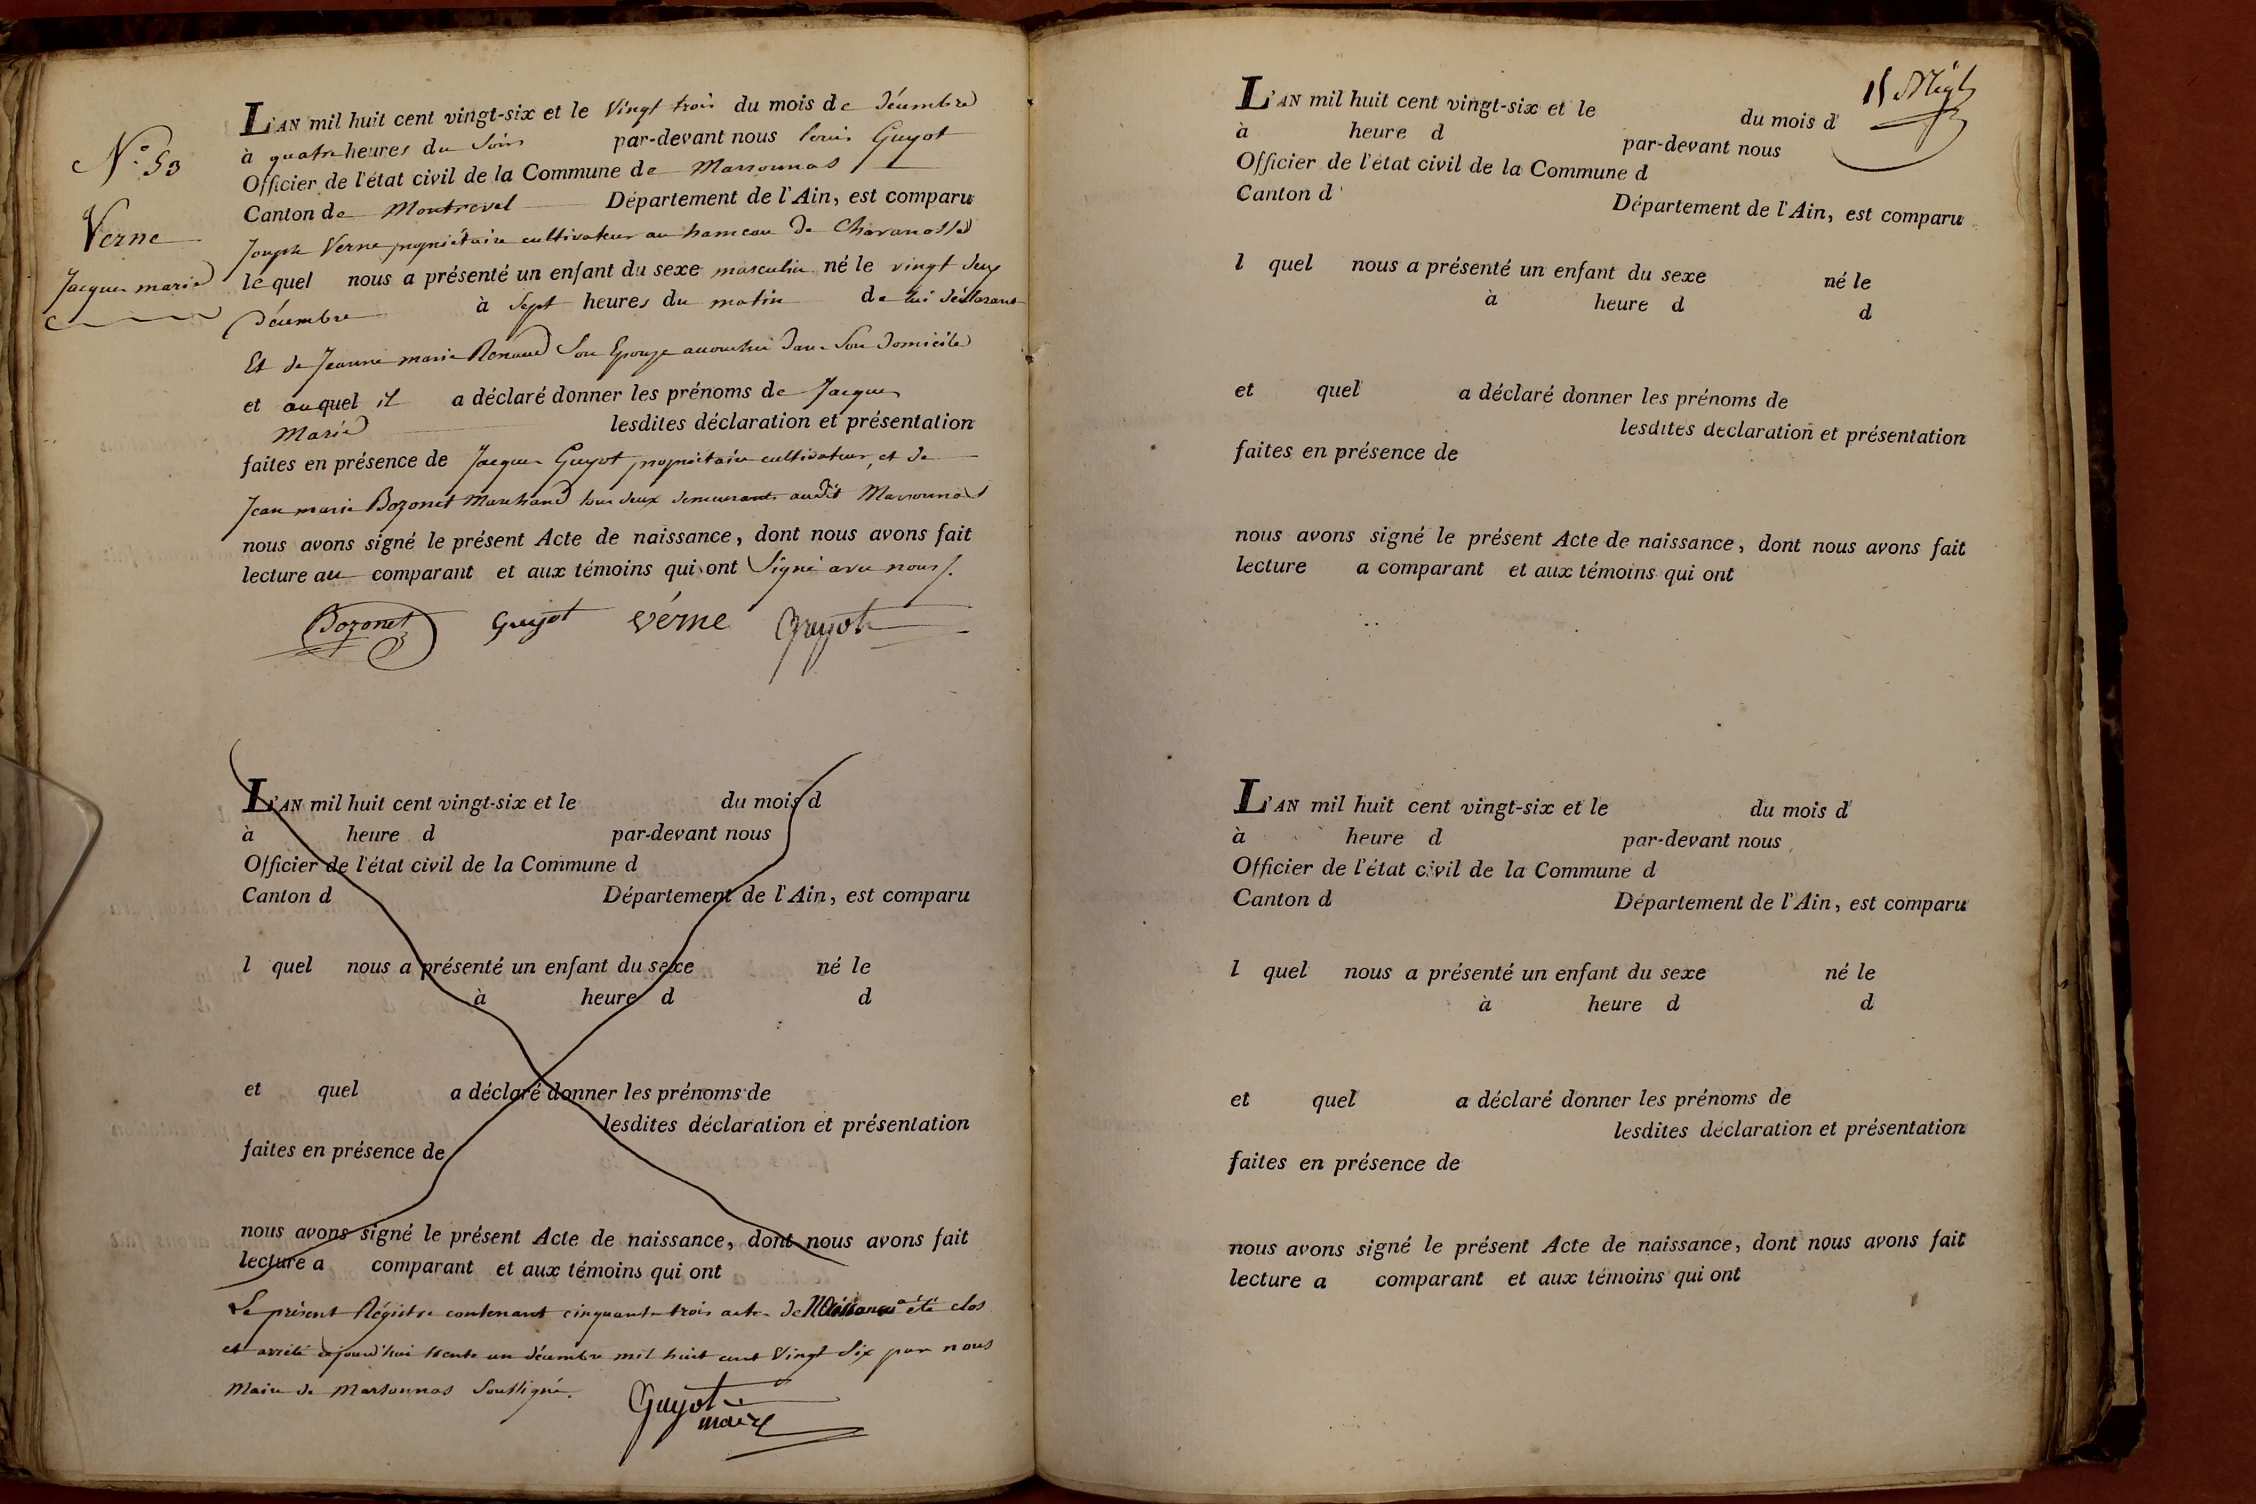 N.° 53
Verne
Jacques marie
L'AN mil huit cent vingt-six et le Vingt trois du mois de décembre
à quatre heures du Soir par-devant nous Louis Guyot
Officier de l'état civil de la Commune de Marsonnas
Canton de Montrevel Département de l'Ain, est comparu
Joseph Verne propriétaire cultivateur au hameau de Charanasse
lequel nous a présenté un enfant du sexe masculin né le vingt deux
décembre à Sept heures du matin de lui déclarant
Et de Jeanne marie Renaud Son Epouse accouchée dans Son domicile
et auquel il a déclaré donner les prénoms de Jacques
Marie lesdites déclaration et présentation
faites en présence de Jacques Guyot propriétaire cultivateur, et de
Jean marie Bozonet Marchand tous deux demeurants audit Marsonnas
nous avons signé le présent Acte de naissance, dont nous avons fait
lecture au comparant et aux témoins qui ont Signé avec nous /.
Bozonet Guyot verne Guyot
L'AN mil huit cent vingt-six et le du mois d
à heure d par-devant nous
Officier de l'état civil de la Commune d
Canton d Département de l'Ain, est comparu
l quel nous a présenté un enfant du sexe né le
à heure d d
et quel a déclaré donner les prénoms de
lesdites déclaration et présentation
faites en présence de
nous avons signé le présent Acte de naissance, dont nous avons fait
lecture a comparant et aux témoins qui ont
Le présent Régistre contenant cinquante trois actes de Naissances a été clos
et arrêté aujourd'hui trente un décembre mil huit cent Vingt Six par nous
Maire de Marsonnas Soussigné.
Guyot
maire
L'AN mil huit cent vingt-six et le du mois d
à heure d par-devant nous
Officier de l'état civil de la Commune d
Canton d Département de l'Ain, est comparu
l quel nous a présenté un enfant du sexe né le
à heure d d
et quel a déclaré donner les prénoms de
lesdites déclaration et présentation
faites en présence de
nous avons signé le présent Acte de naissance, dont nous avons fait
lecture a comparant et aux témoins qui ont
L'AN mil huit cent vingt-six et le du mois d
à heure d par-devant nous
Officier de l'état civil de la Commune d
Canton d Département de l'Ain, est comparu
l quel nous a présenté un enfant du sexe né le
à heure d d
et quel a déclaré donner les prénoms de
lesdites déclaration et présentation
faites en présence de
nous avons signé le présent Acte de naissance, dont nous avons fait
lecture a comparant et aux témoins qui ont